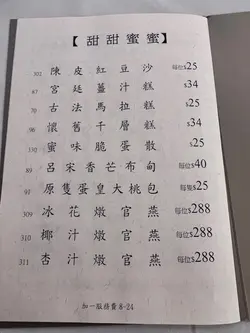 【甜甜蜜蜜】
302 陳皮紅豆沙 每位$25
67 宮廷薑汁糕 $34
70 古法馬拉糕 $25
96 懷舊千層糕 $34
110 蜜味脆蛋散 $25
89 呂宋香芒布甸 每位$40
91 原隻蛋皇大桃包 每隻$25
309 冰花燉官燕 每位$288
310 椰汁燉官燕 每位$288
311 杏汁燉官燕 每位$288
加一服務費 8-24